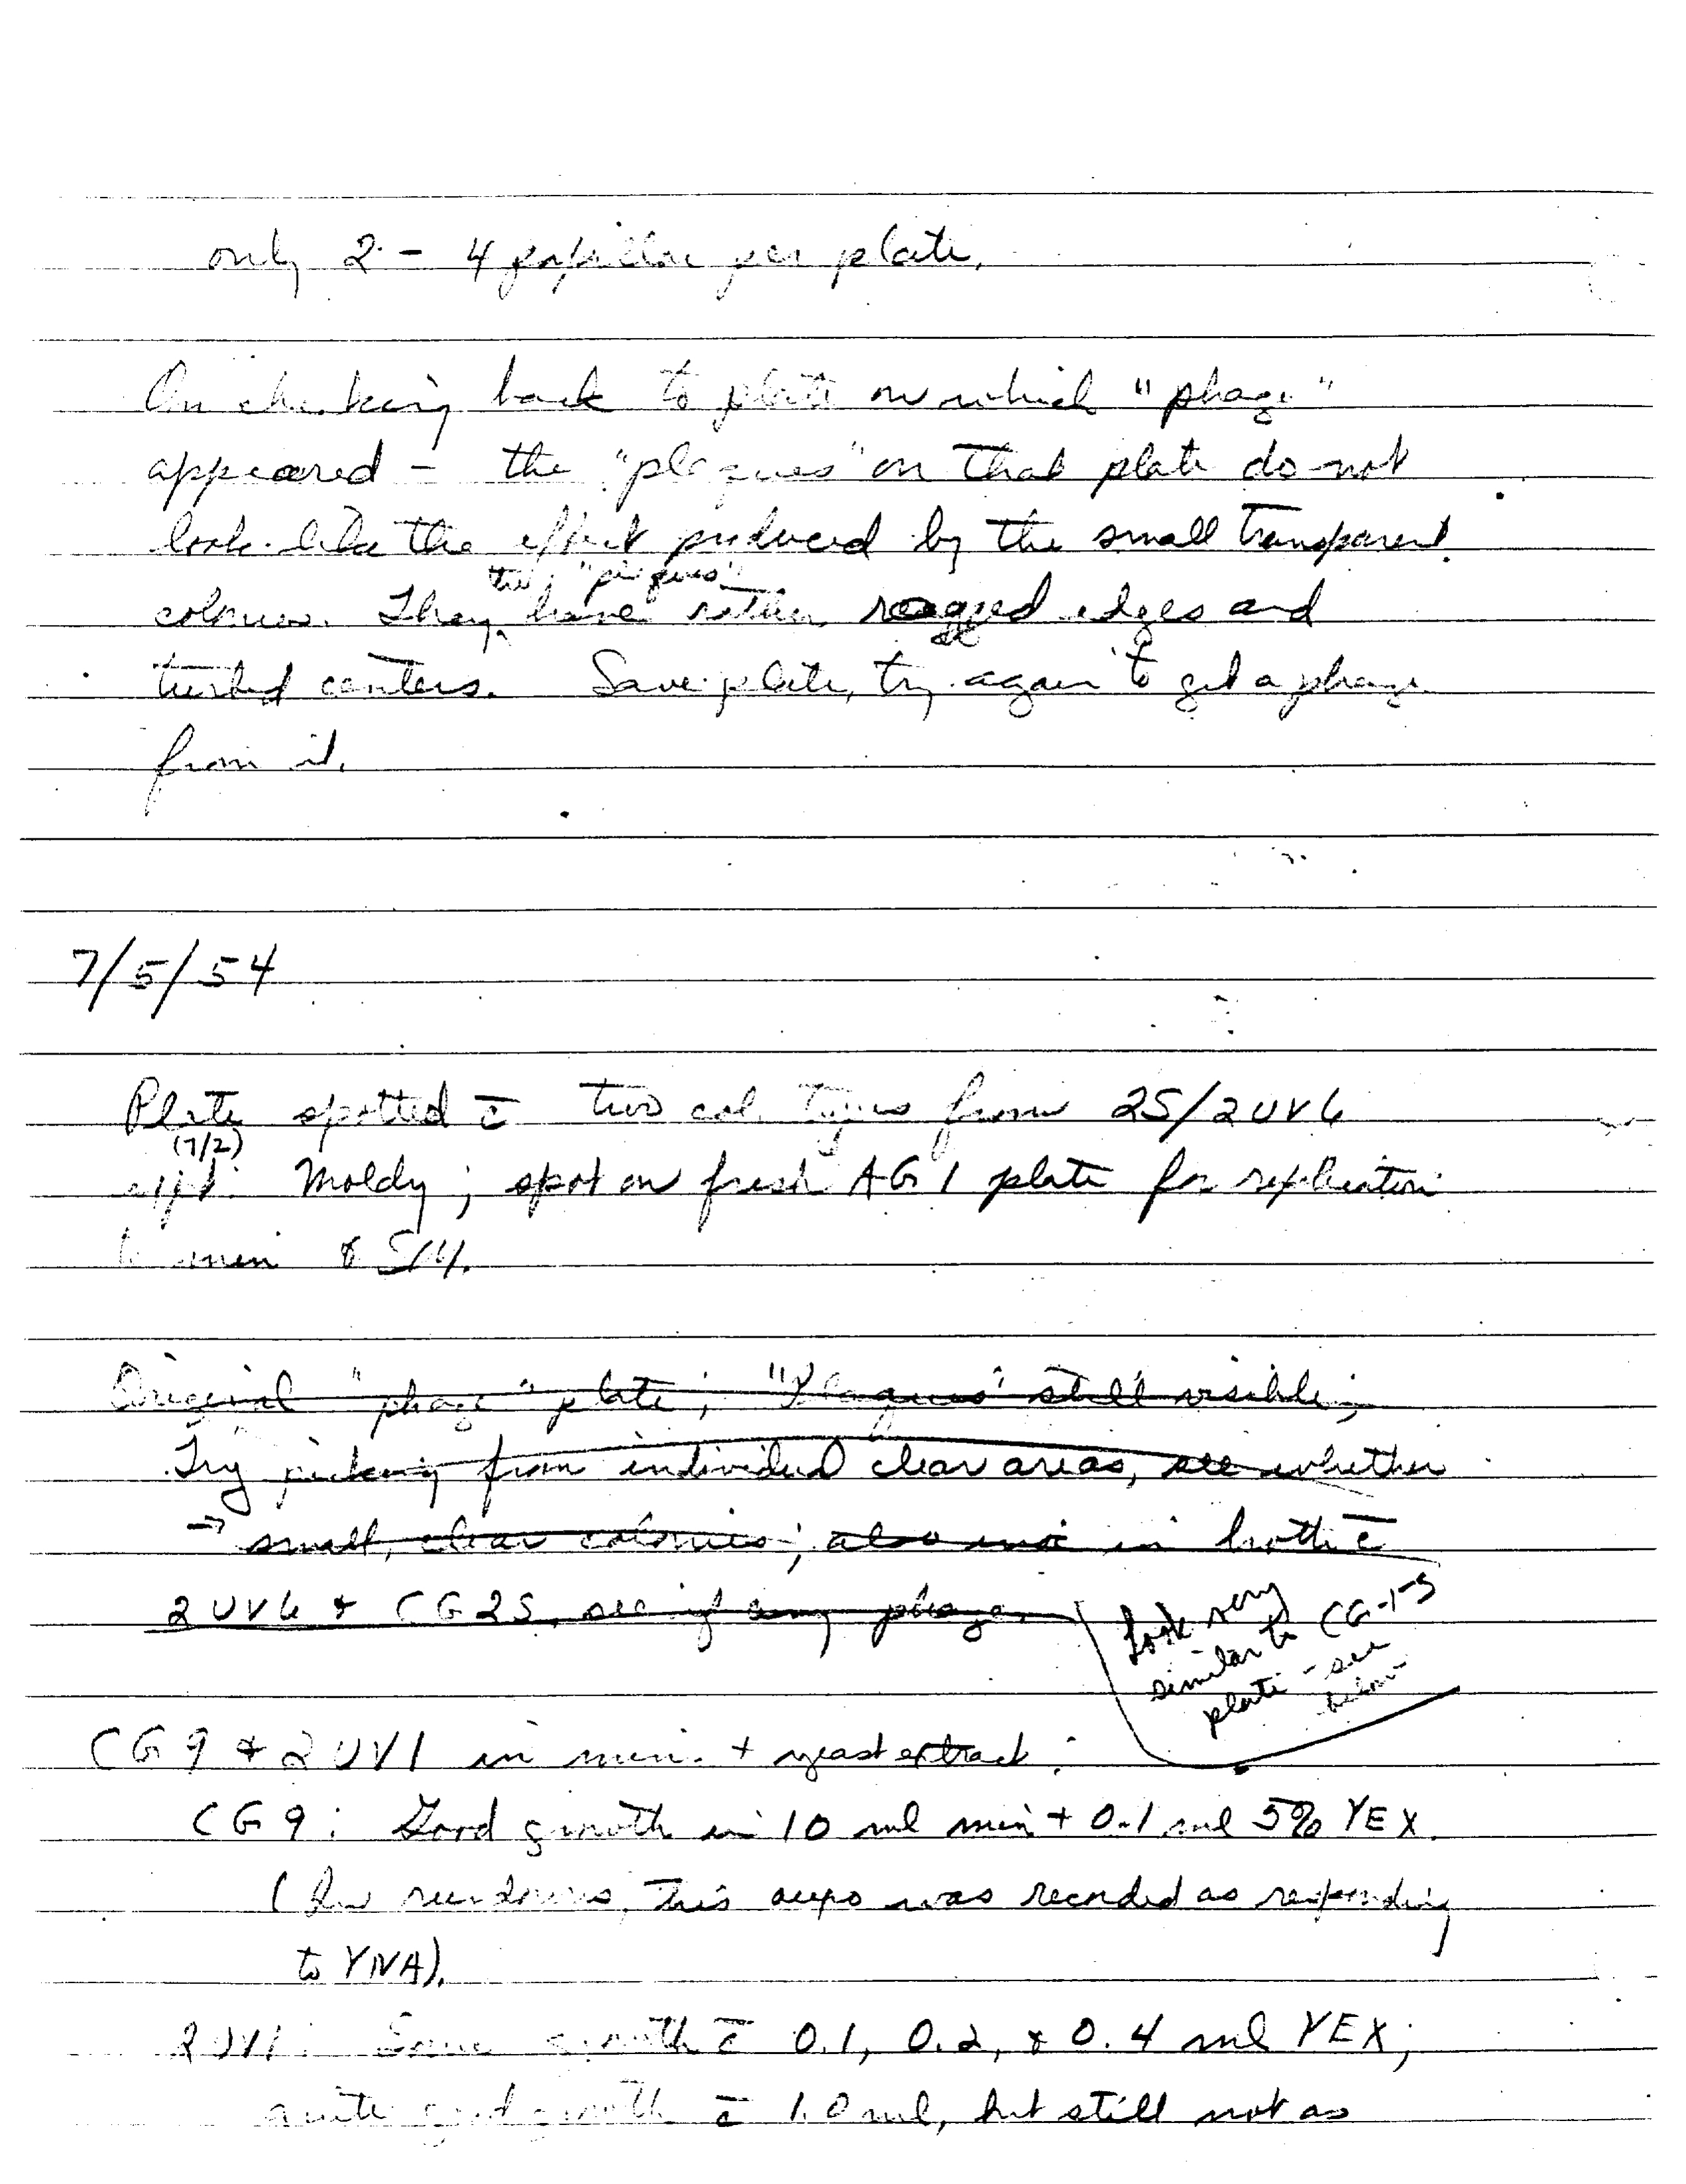 only 2 - 4 papillae per plate.
On checking back to plate on which "phage"
appeared - the "plaques" on that plate do not
look like the effect produced by the small transparent
the "plaques"
colonies. They have rather ragged edges and
turbid centers. Save plate, try again to get a phage
from it.
7/5/54
Plate spotted c̄ two col. types from 25/2UV6
(7/2)
expt. Moldy; spot on fresh AG1 plate for replication
to min & SM.
Original "phage" plate; "Plaques" still visible;
Try picking from individual clear areas, see whether
→ small, clear colonies; also mix in broth c̄
2UV6 & CG25, see if any phage.
Look very
similar to CG-15
plate - see
below
CG9 & 2UV1 in min. + yeast extract:
CG9: Good growth in 10 ml min + 0.1 ml 5% YEX.
(In rundowns, this auxo was recorded as responding
to YNA).
2UV1: Some growth c̄ 0.1, 0.2, & 0.4 ml YEX;
quite good growth c̄ 1.0 ml, but still not as